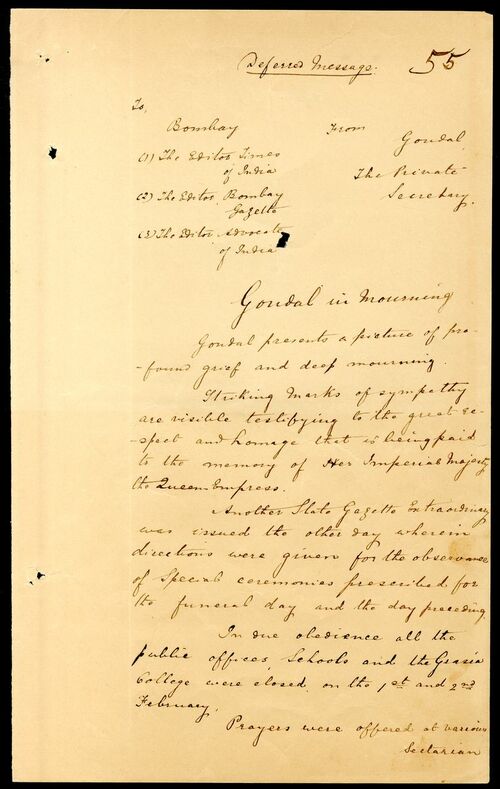 Deferred Message.
55
To,
Bombay
(1) The Editor Times
of India
(2) The Editor, Bombay
Gazette
(3) The Editor Advocate
of India
From
Gondal
The Private
Secretary.
Gondal in Mourning
Gondal presents a picture of pro-
-found grief and deep mourning.
Striking Marks of sympathy
are visible testifying to the great re-
-spect and homage that is being paid
to the memory of Her Imperial Majesty
the Queen Empress.
Another State Gazette Extraordinary
was issued the other day wherein
directions were given for the observance
of Special ceremonies prescribed for
the funeral day and the day preceding.
In due obedience all the
public offices, Schools and the Grasia
College were closed, on the 1st and 2nd
February.
Prayers were offered at various
Sectarian